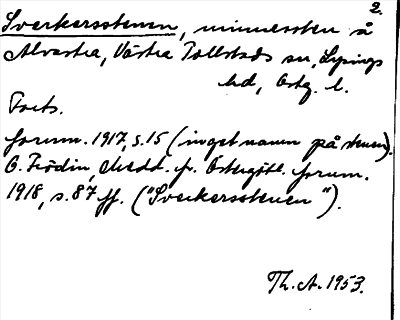 2.
Sverkersstenen, minnessten å
Alvastra, Västra Tollstads sn, Lysings
hd, Östg. l.
Forts.
forum. 1917, s. 15 (inget namn på stenen).
O. Frödin, Medd. fr. Östergötl. fornm.
1918, s. 87 ff. ("Sverkersstenen").
Th. A. 1953.